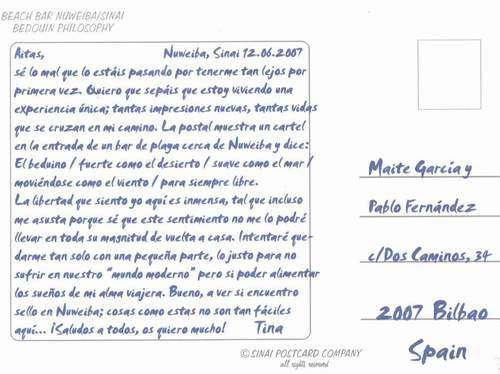 BEACH BAR NUWEIBA/SINAI
BEDOUIN PHILOSOPHY
Aitas, Nuweiba, Sinai 12.06.2007
sé lo mal que lo estáis pasando por tenerme tan lejos por
primera vez. Quiero que sepáis que estoy viviendo una
experiencia única; tantas impresiones nuevas, tantas vidas
que se cruzan en mi camino. La postal muestra un cartel
en la entrada de un bar de playa cerca de Nuweiba y dice:
El beduino / fuerte como el desierto / suave como el mar /
moviéndose como el viento / para siempre libre.
La libertad que siento yo aquí es inmensa, tal que incluso
me asusta porque sé que este sentimiento no me lo podré
llevar en toda su magnitud de vuelta a casa. Intentaré que-
darme tan solo con una pequeña parte, lo justo para no
sufrir en nuestro "mundo moderno" pero si poder alimentar
los sueños de mi alma viajera. Bueno, a ver si encuentro
sello en Nuweiba; cosas como estas no son tan fáciles
aquí... ¡Saludos a todos, os quiero mucho! Tina
Maite García y
Pablo Fernández
c/Dos Caminos, 34
2007 Bilbao
Spain
©SINAI POSTCARD COMPANY
all rights reserved